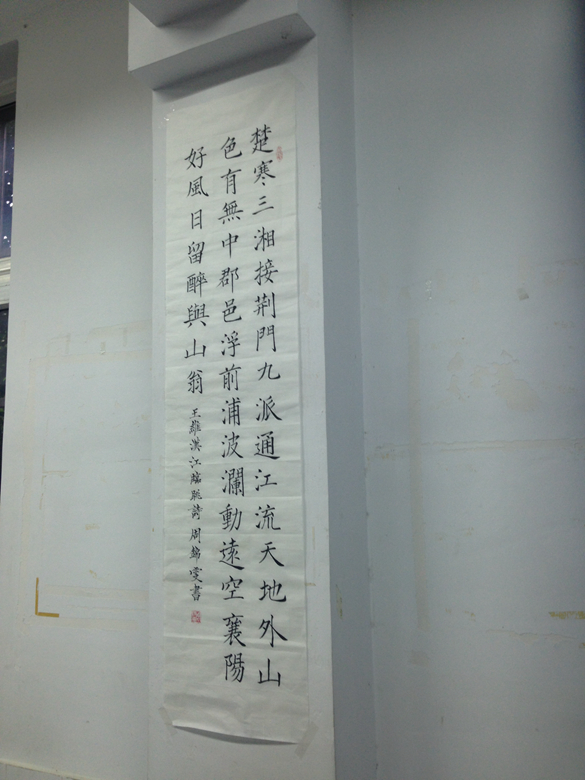 楚寒三湘接荆門九派通江流天地外山
色有無中郡邑浮前浦波瀾動遠空襄陽
好風日留醉與山翁 王維漢江臨眺詩 周錦雯書